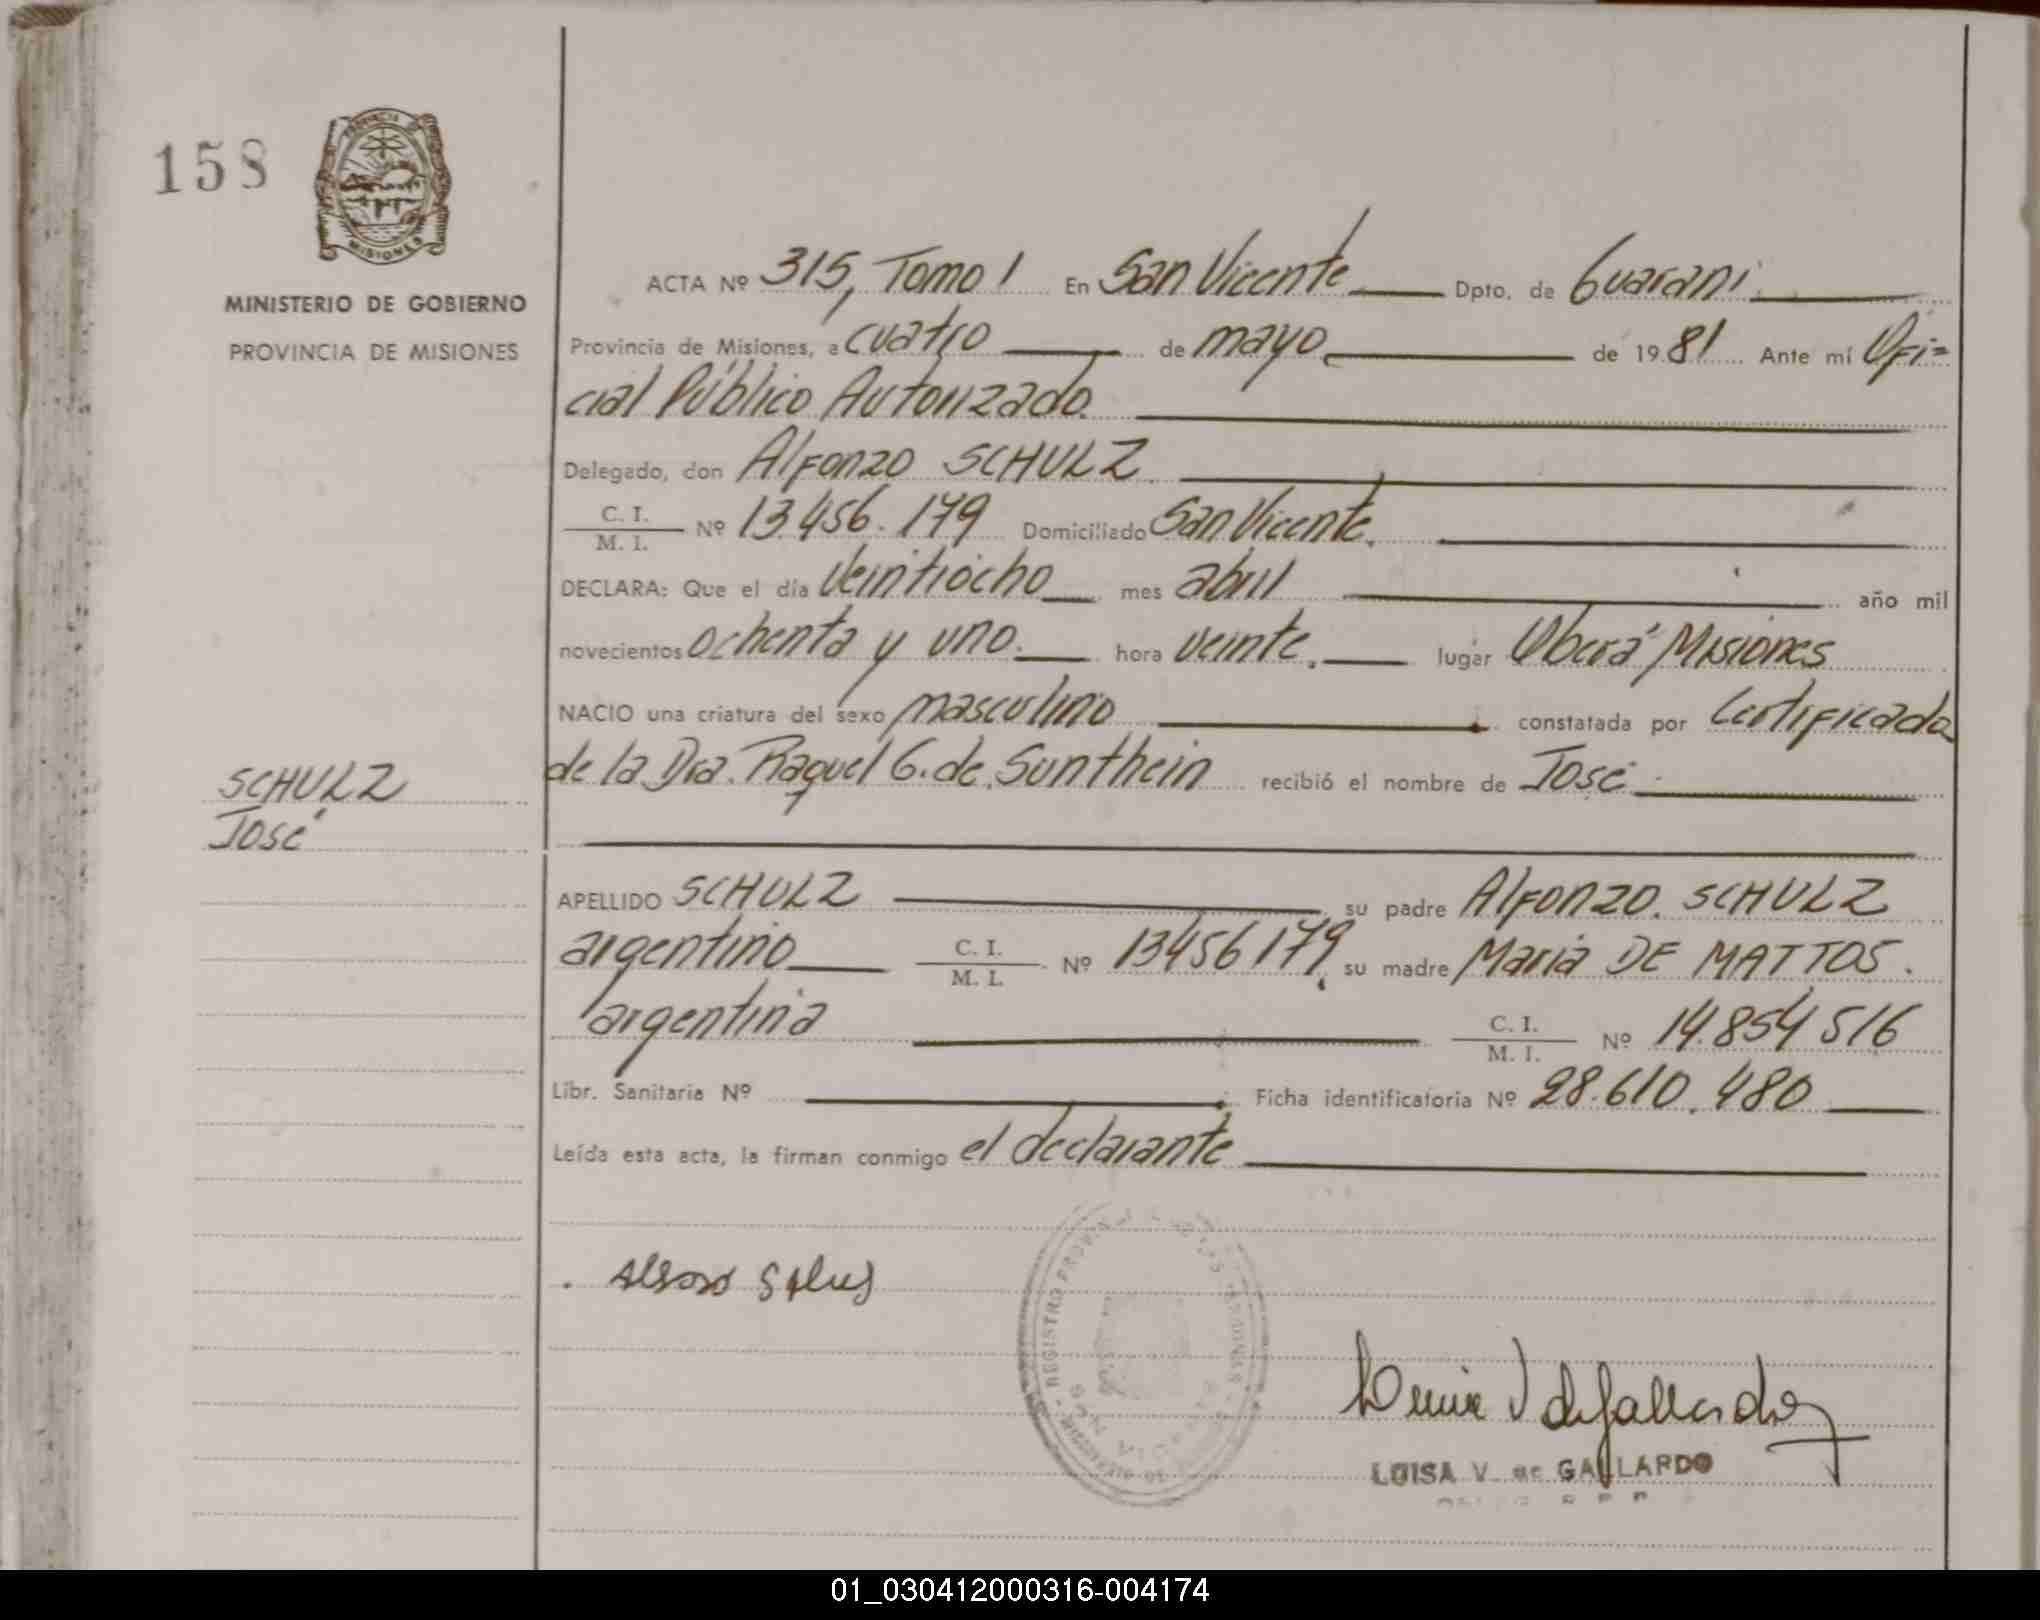 158
PROVINCIA DE
MISIONES
MINISTERIO DE GOBIERNO
PROVINCIA DE MISIONES
SCHULZ
José
ACTA Nº 315, Tomo 1 En San Vicente Dpto. de Guaraní
Provincia de Misiones, a cuatro de mayo de 1981 Ante mí Ofi=
cial Público Autorizado.
Delegado, don Alfonzo SCHULZ
C. I.
M. I. Nº 13.456.179 Domiciliado San Vicente.
DECLARA: Que el día veintiocho mes abril año mil
novecientos ochenta y uno. hora veinte. lugar Oberá Misiones
NACIO una criatura del sexo masculino constatada por Certificado
de la Dra. Raquel G. de Sunthein recibió el nombre de José
APELLIDO SCHULZ su padre Alfonzo SCHULZ
argentino C. I.
M. I. Nº 13456179. su madre María DE MATTOS.
argentina C. I.
M. I. Nº 14.854516
Libr. Sanitaria Nº Ficha identificatoria Nº 28.610.480
Leída esta acta, la firman conmigo el declarante
REGISTRO PROVINCIAL DE LAS PERSONAS
LUISA V. de GALLARDO
01_030412000316-004174